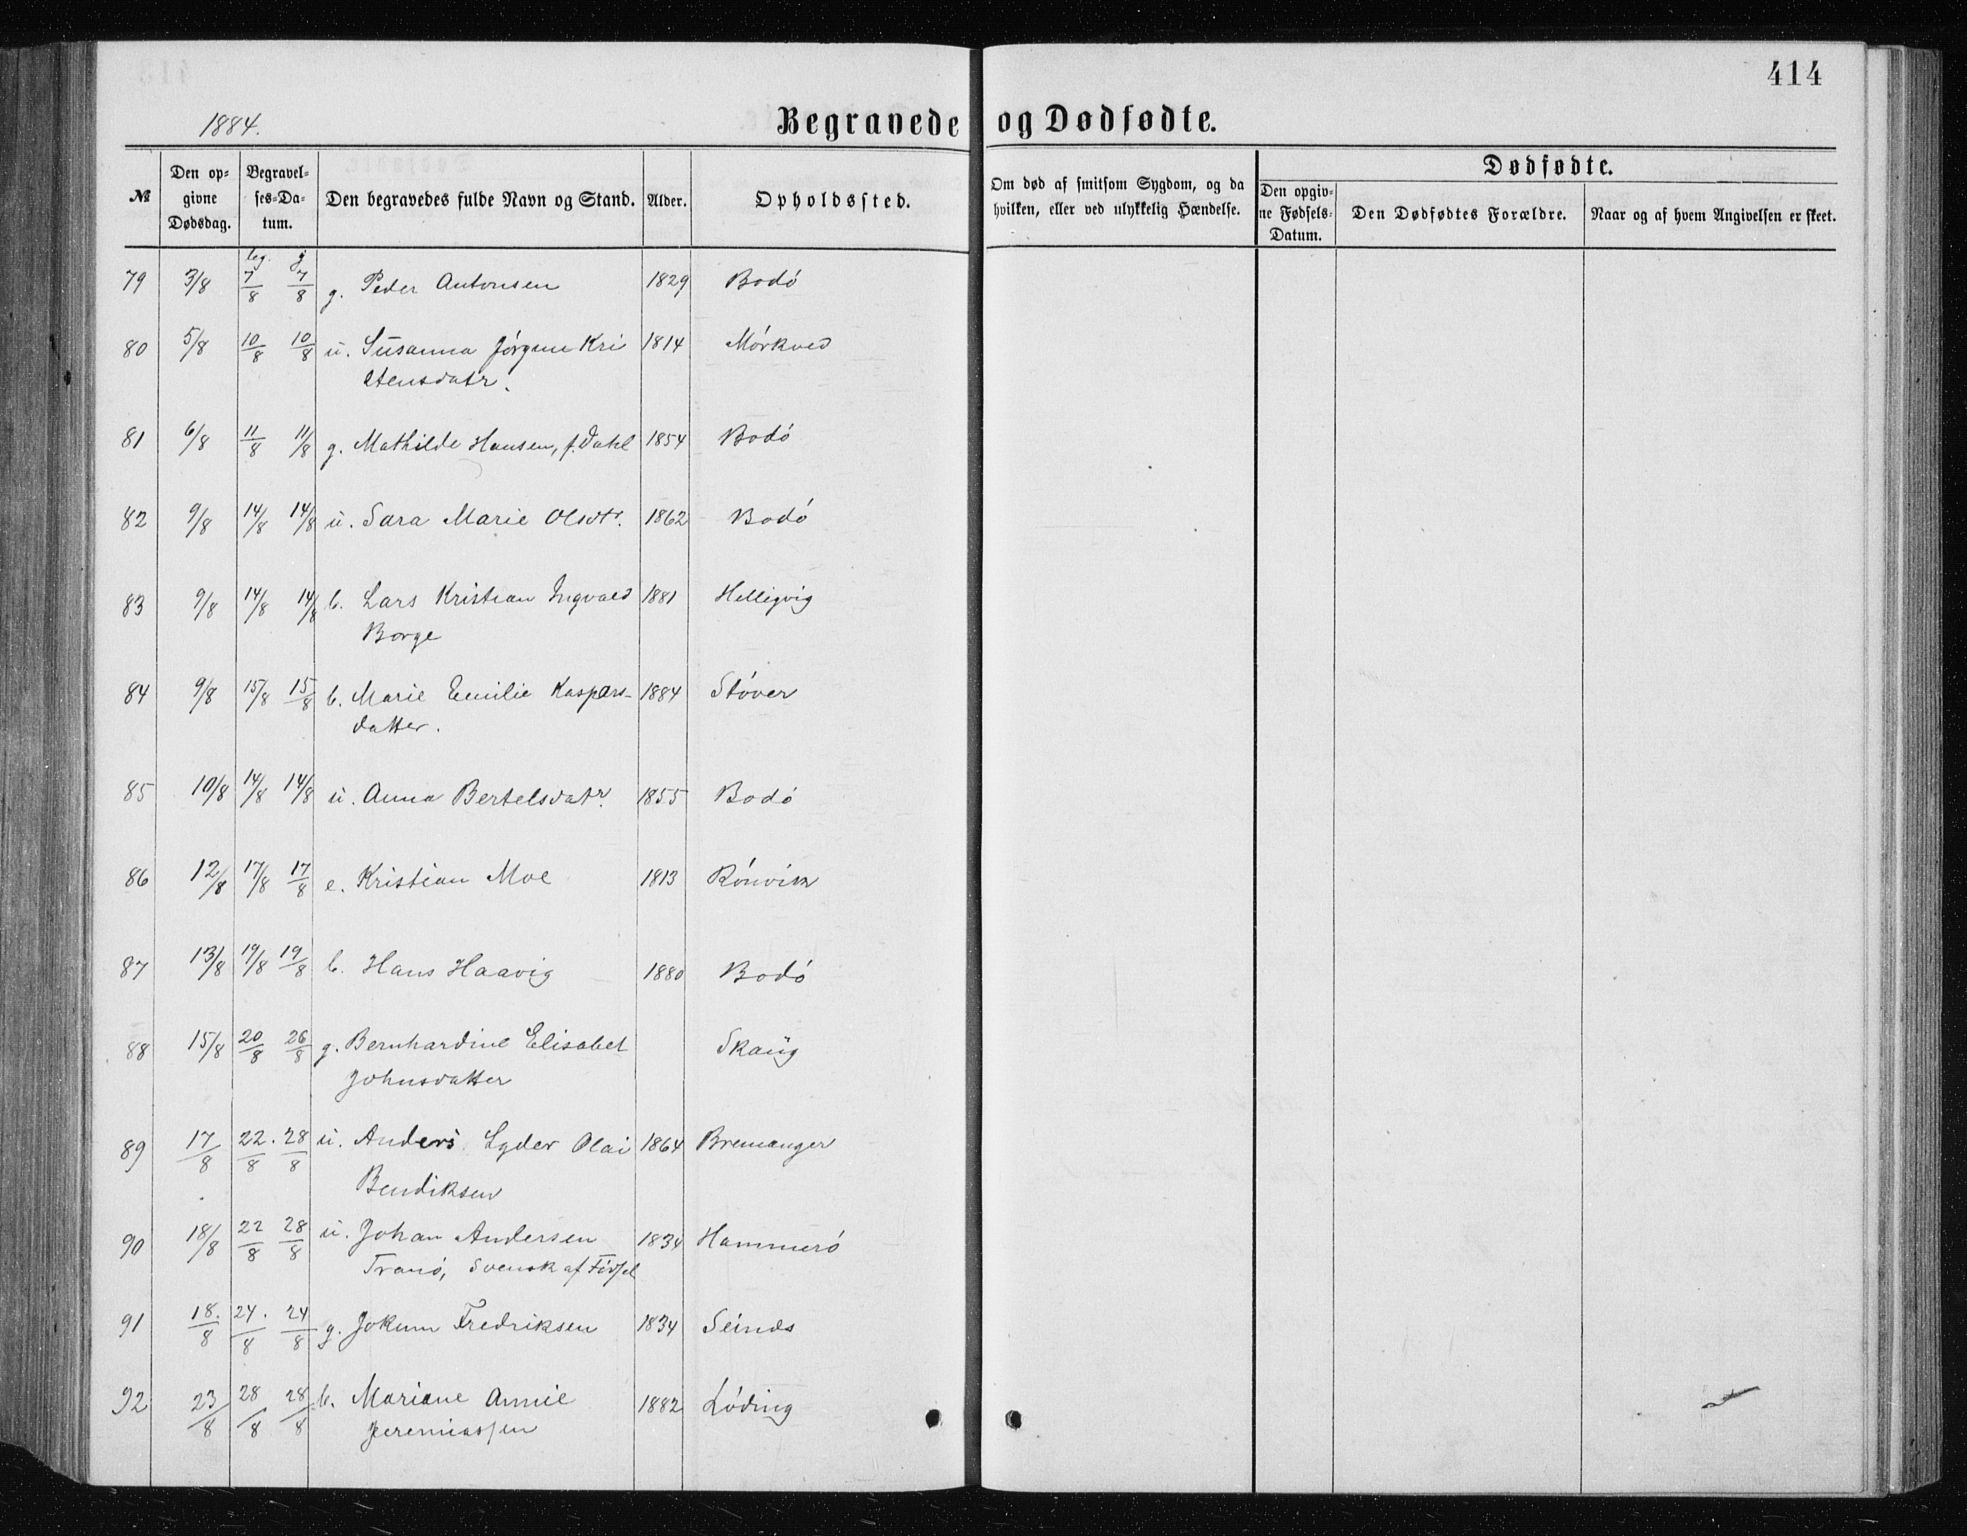 414
1884.
Begravede og Dødfødte.
№ Den opgivne Dødsdag. Begravelses-Datum. Den begravedes fulde Navn og Stand. Alder. Opholdssted. Om død af smitsom Sygdom, og da hvilken, eller ved ulykkelig Hændelse. Dødfødte. Den opgivne Fødsels-Datum. Den Dødfødtes Forældre. Naar og af hvem Angivelsen er skeet.
79 3/8 7/8 7/8 g. Peder Antonsen 1829 Bodó
80 5/8 10/8 10/8 u. Susanna Jórgine Kri 1814 Mórkved
stensdatr.
81 6/8 11/8 11/8 g. Mathilde Hansen, f. Dahl 1854 Bodó
82 9/8 14/8 14/8 u. Sara Marie Olsdtr. 1862 Bodó
83 9/8 14/8 14/8 b. Lars Kristian Ingvald 1881 Helligvig
Borge
84 9/8 15/8 15/8 b. Marie Emilie Kaspars- 1884 Stóver
datter.
85 10/8 14/8 14/8 u. Anna Bertelsdatr. 1855 Bodó
86 12/8 17/8 17/8 e. Kristian Moe 1813 Rónvik
87 13/8 19/8 19/8 b. Hans Haavig 1880 Bodó
88 15/8 20/8 26/8 g. Bernhardine Elisabet Skaug
Johnsdatter
89 17/8 22/8 28/8 u. Anders Lyder Olai 1864 Bremanger
Bendiksen
90 18/8 22/8 28/8 u. Johan Andersen 1834 Hammeró
Tranó, Svensk af Fódsel
91 18/8 24/8 24/8 g. Jokum Fredriksen 1834 Seinds
92 23/8 28/8 28/8 b. Mariane Annie 1882 Lóding
Jeremiassen